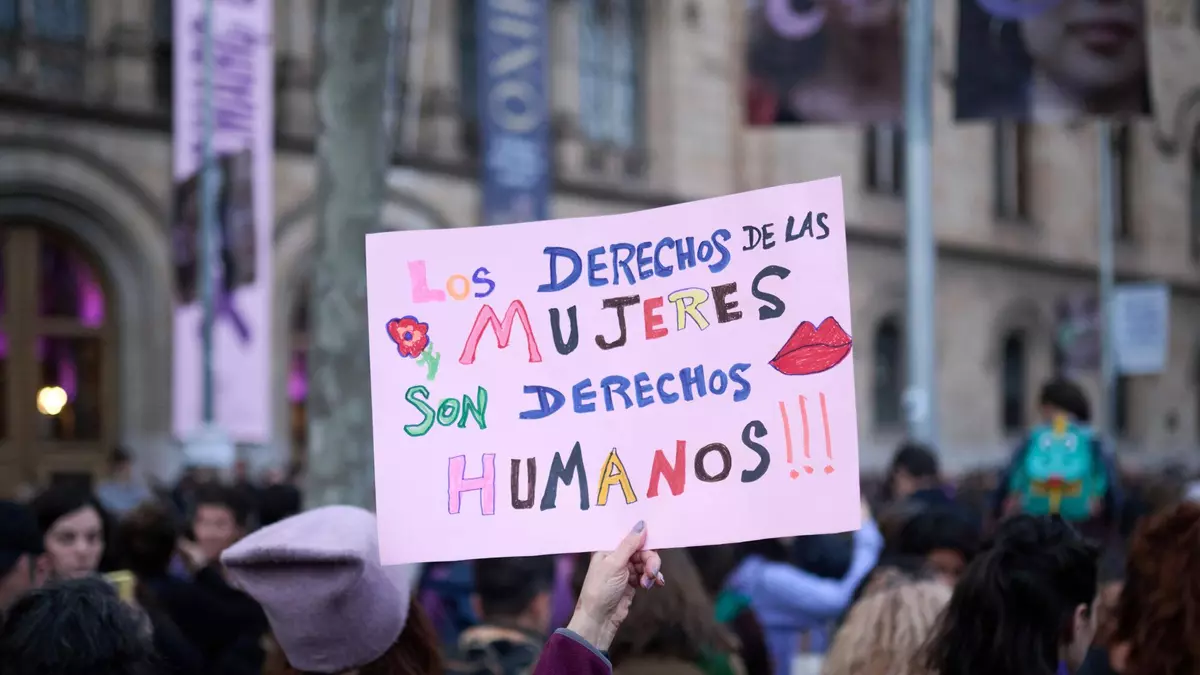 Los DERECHOS DE LAS
MUJERES
SON DERECHOS
HUMANOS!!!